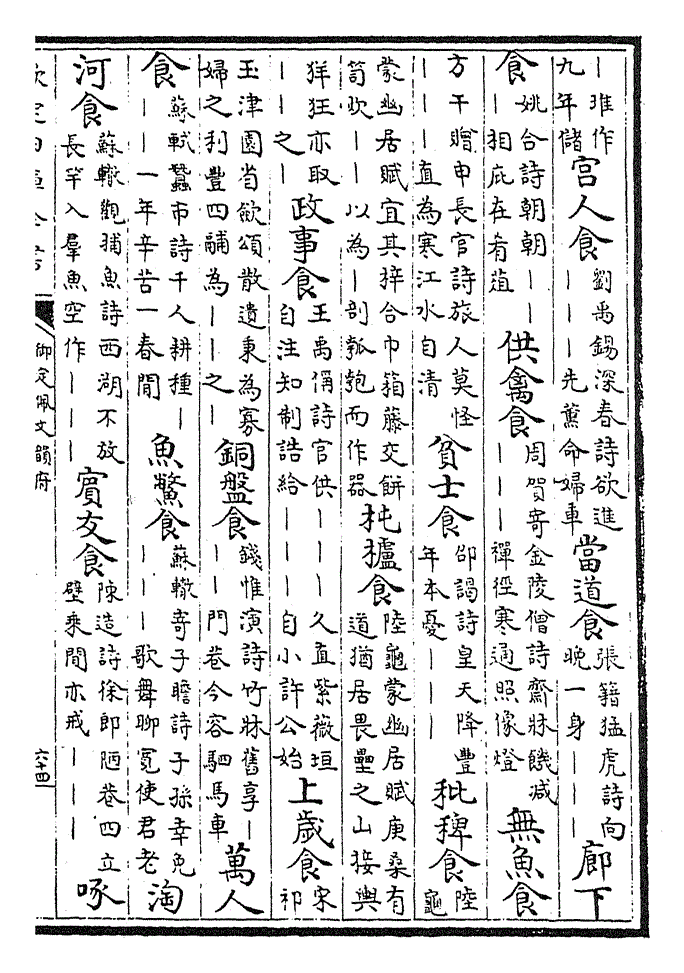 ｜琟作九年儲宫人食劉禹錫深春詩欲進｜｜｜先薫命婦車當道食張籍猛虎詩向晚一身｜｜｜廊下
食姚合詩朝朝｜｜｜相庇在肴葅供禽食周賀寄金陵僧詩齋牀饑减｜｜｜禪徑寒通照像燈無魚食
方干贈申長官詩旅人莫怪｜｜｜直為寒江水自清貧士食邵謁詩皇天降豐年本憂｜｜｜秕稗食陸龜
蒙幽居賦宜其捽合巾箱藤交餅笥吹｜｜以為｜剖瓠匏而作器杶櫨食陸龜蒙幽居賦庚桑有道猶居畏壘之山接輿
佯狂亦取｜｜之｜政事食王禹偁詩官供｜｜｜久直紫薇垣自注知制誥給｜｜｜自小許公始上歲食宋祁
玉津園省歛頌散遺秉為寡婦之利豐四鬴為｜｜之｜銅盤食錢惟演詩竹牀舊享｜｜｜門巷今容駟馬車萬人
食蘇軾蠶市詩千人耕種｜｜｜一年辛苦一春閒魚鱉食蘇轍寄子瞻詩子孫幸免｜｜｜歌舞聊寛使君老淘
河食蘇轍觀捕魚詩西湖不放長竿入羣魚空作｜｜｜賓友食陳造詩徐郎陋巷四立壁乗間亦戒｜｜｜啄
欽定四庫全書
御定佩文韻府
六十四